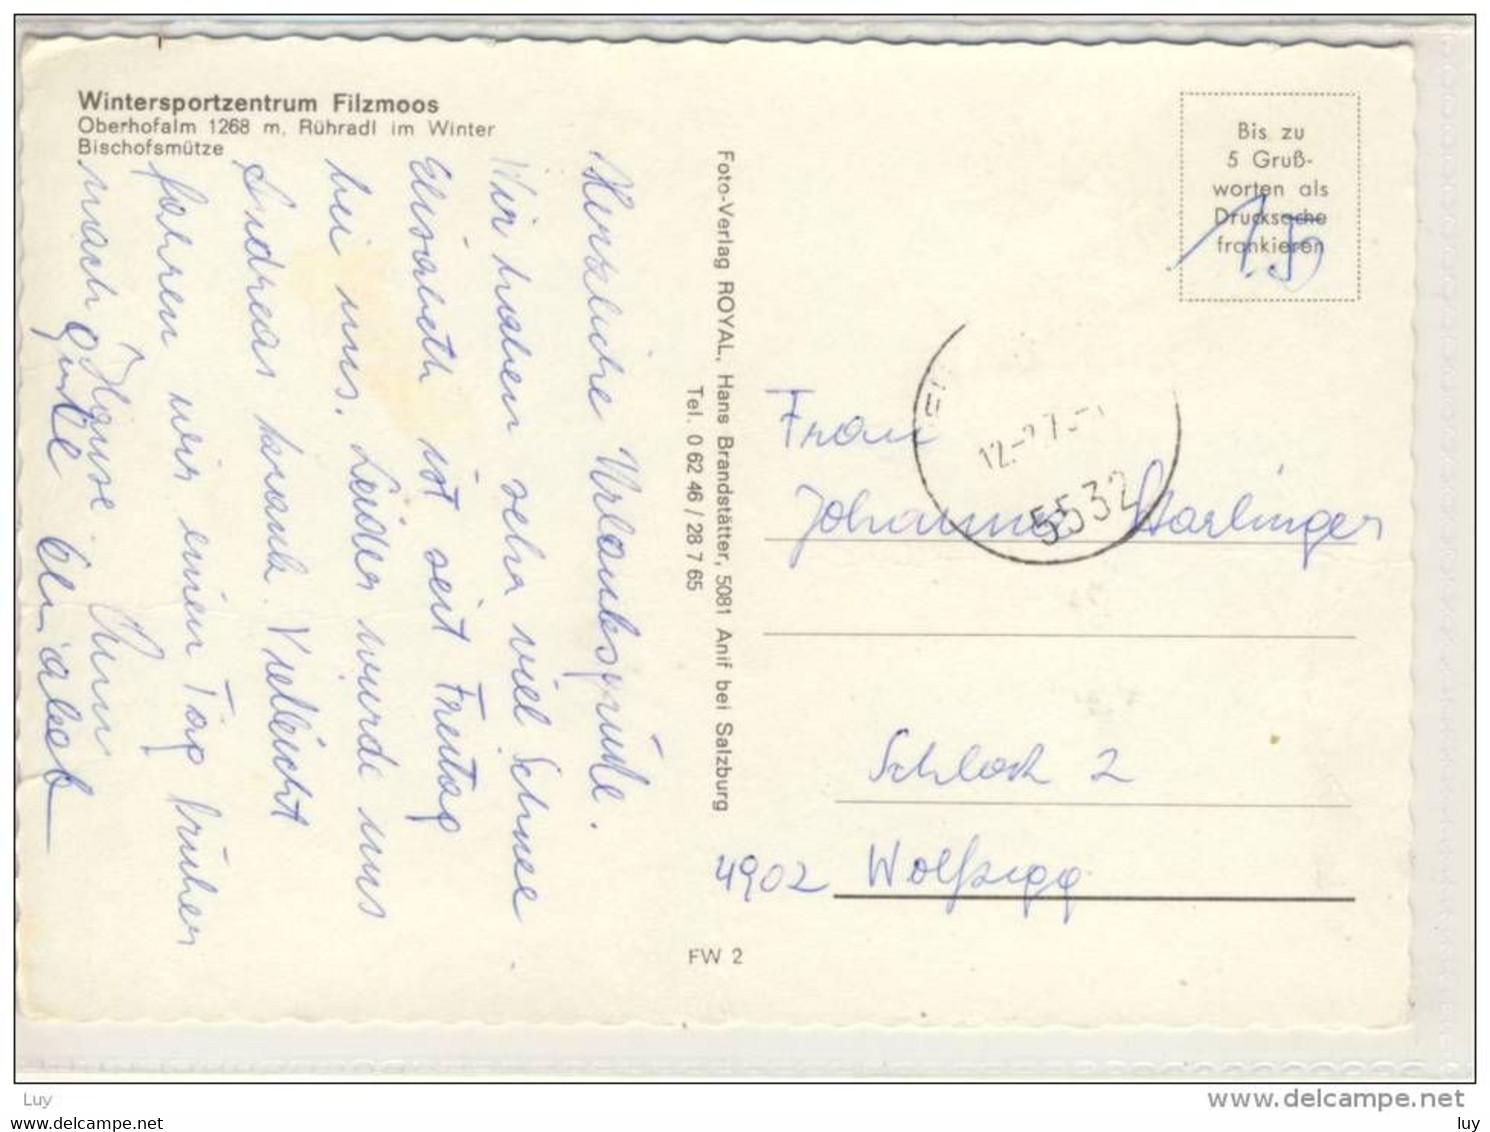 Wintersportzentrum Filzmoos
Oberhofalm 1268 m, Rühradl im Winter
Bischofsmütze
Herzliche Urlaubsgrüße.
Wir haben sehr viel Schnee
Elisabeth ist seit Freitag
bei uns. Leider wurde uns
Andreas krank. Vielleicht
fahren wir einen Tag früher
nach Hause
Gute
Elisabeth
Foto-Verlag ROYAL, Hans Brandstätter, 5081 Anif bei Salzburg
Tel. 0 62 46 / 28 7 65
FW 2
Bis zu
5 Gruß-
worten als
Drucksache
frankieren
1.50
5532
Frau
Johanna Starlinger
Schloß 2
4902 Wolfsegg
Luy
www.delcampe.net
delcampe.net
luy